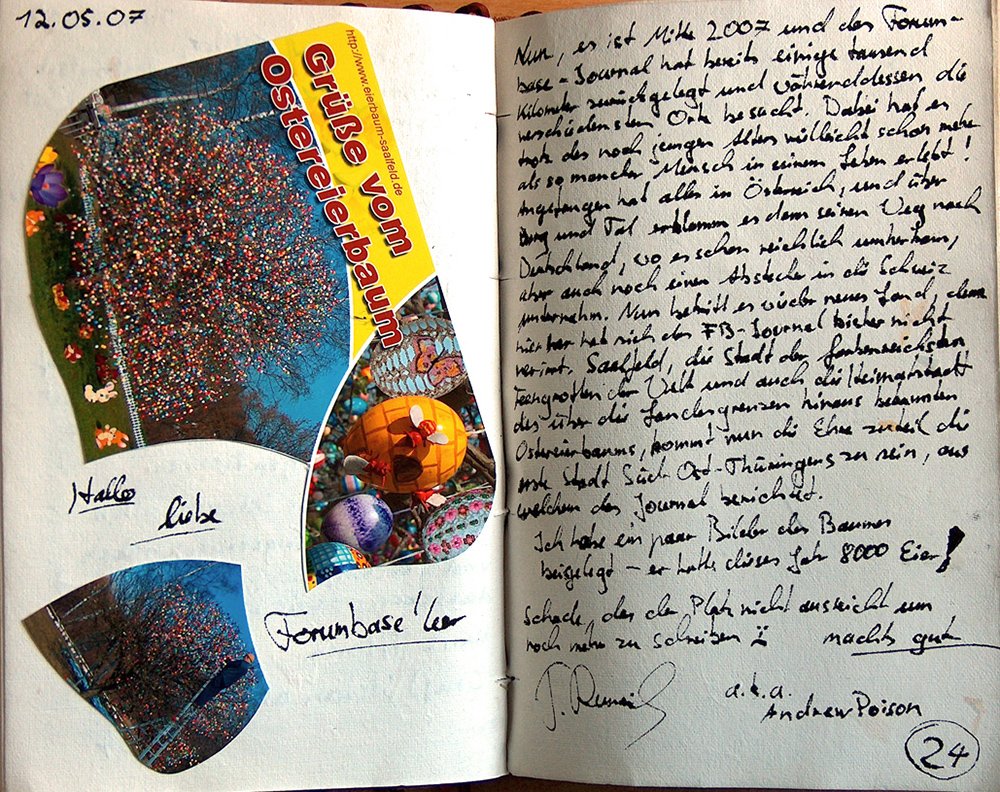 12.05.07
http://www.eierbaum-saalfeld.de
Grüße vom
Ostereierbaum
Hallo
liebe
Forumbase'ler
Nun, es ist Mitte 2007 und das Forum-
base-Journal hat bereits einige tausend
Kilometer zurückgelegt und währenddessen die
verschiedensten Orte besucht. Dabei hat es
trotz des noch jungen Alters vielleicht schon mehr
als so mancher Mensch in seinem Leben erlebt!
Angefangen hat alles in Österreich, und über
Berg und Tal erklomm es dann seinen Weg nach
Deutschland, wo es schon reichlich umherkam,
aber auch noch einen Abstecher in die Schweiz
unternahm. Nun betritt es wieder neues Land, denn
hierher hat sich das FB-Journal bisher nicht
verirrt. Saalfeld, die Stadt der farbenreichsten
Feengrotten der Welt und auch die Heimatstadt
des über die Landesgrenzen hinaus bekannten
Ostereierbaums, kommt nun die Ehre zuteil die
erste Stadt Süd-Ost-Thüringens zu sein, aus
welchem das Journal berichtet.
Ich habe ein paar Bilder des Baumes
beigelegt - er hatte dieses Jahr 8000 Eier!
Schade, das der Platz nicht ausreicht um
noch mehr zu schreiben machts gut
a.k.a.
Andrew Poison
24